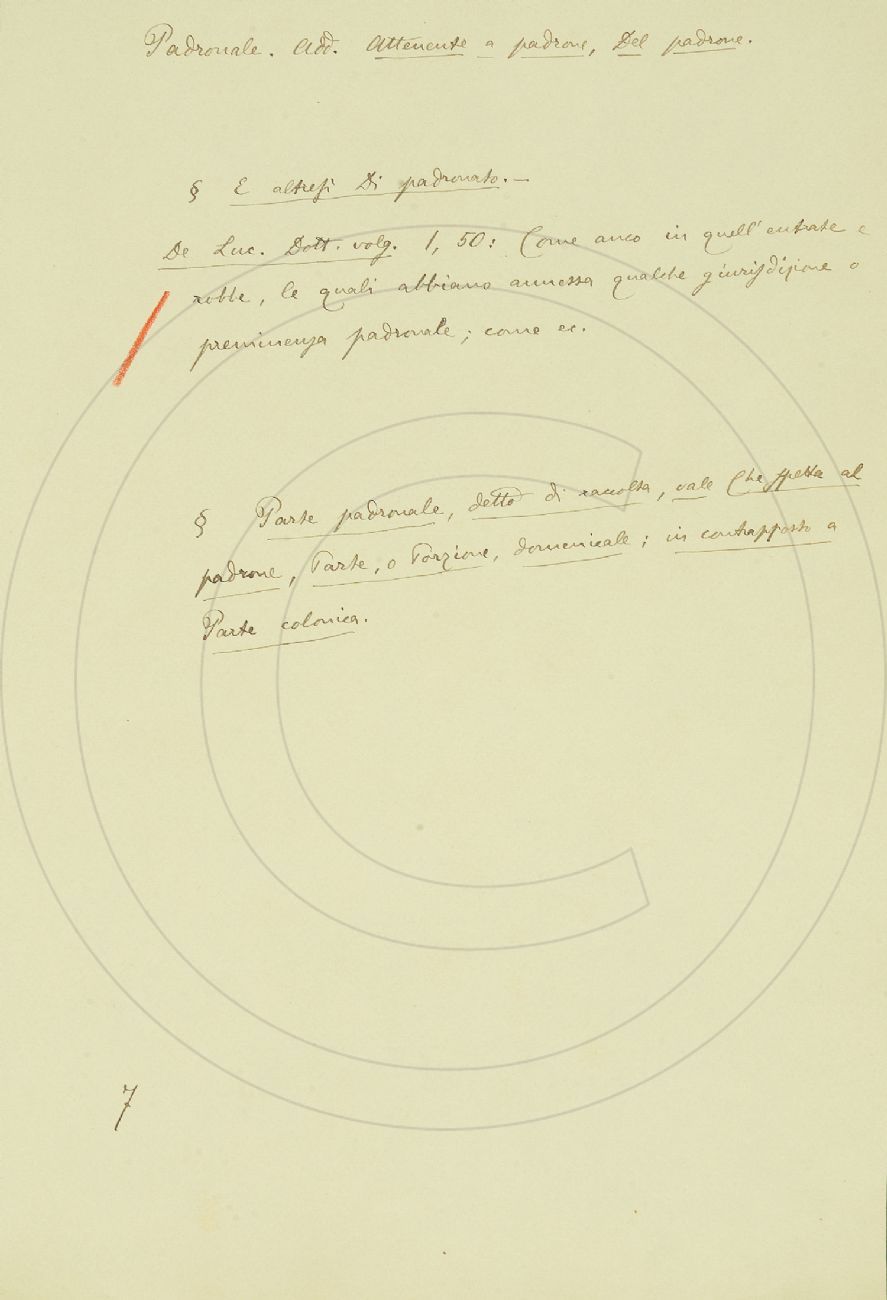 Padronale. Add. Attenente a padrone, Del padrone.
§ E altresì Di padronato. —
De Luc. Dott. volg. 1, 50: Come anco in quell'entrate e
robbe, le quali abbiano annessa qualche giurisdizione o
preminenza padronale; come ec.
§ Parte padronale, detto di raccolta, vale Che spetta al
padrone, Parte, o Porzione, domenicale; in contrapposto a
Parte colonica.
7